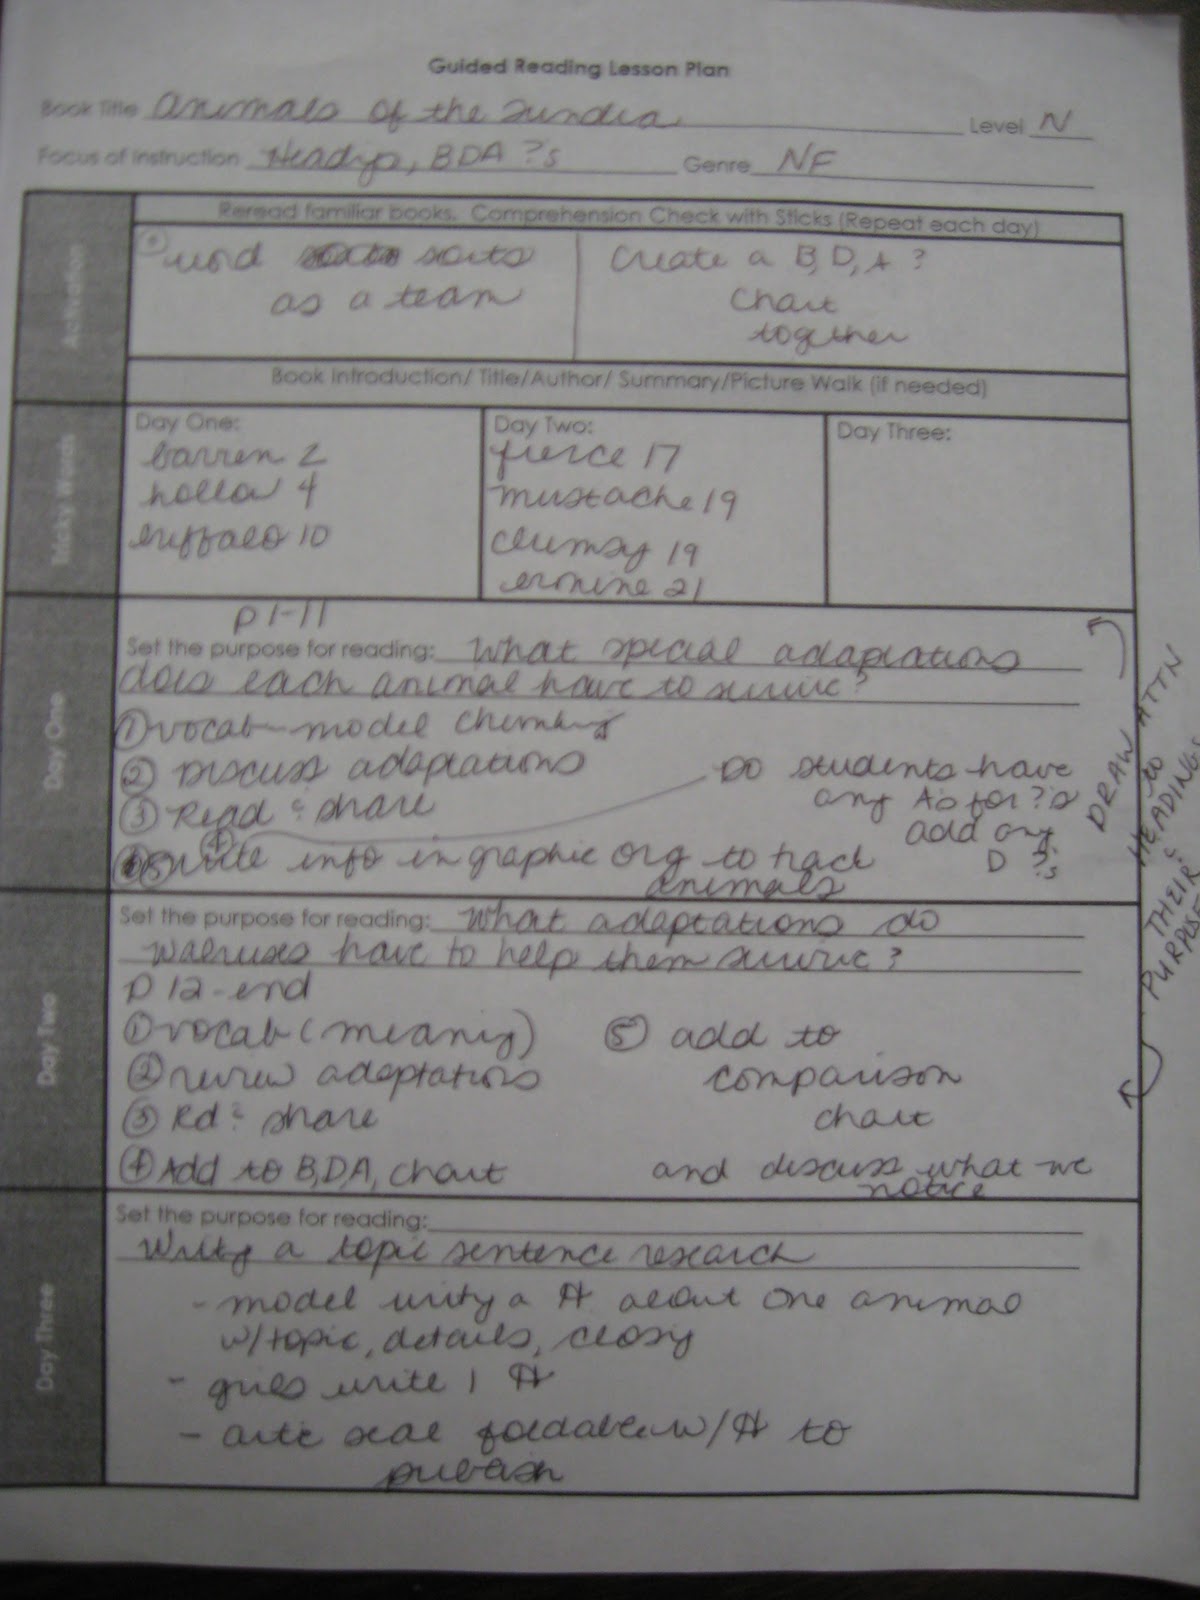 Guided Reading Lesson Plan
Book Title Animals of the Tundra Level N
Focus of Instruction Headings, BDA ?s Genre NF
Activation
Reread familiar books. Comprehension Check with Sticks (Repeat each day)
word sorts
as a team
Create a B, D, A ?
Chart
together
Book Introduction/ Title/Author/ Summary/Picture Walk (if needed)
Tricky Words
Day One:
barren 2
hollow 4
buffalo 10
Day Two:
fierce 17
mustache 19
clumsy 19
ermine 21
Day Three:
Day One
p 1-11
Set the purpose for reading: What special adaptations
does each animal have to survive?
① vocab - model chunking
② Discuss adaptations
③ Read & share
④ Do students have
any A's for ?'s
add any
D ?'s
⑤ Write info in graphic org to track
animals
DRAW ATTN
to
HEADINGS
&
THEIR
PURPOSE
Day Two
Set the purpose for reading: What adaptations do
walruses have to help them survive?
p 12-end
① vocab (meaning)
② review adaptations
③ Rd & share
④ Add to B, D, A, chart
⑤ add to
comparison
chart
and discuss what we
notice
Day Three
Set the purpose for reading:
Writing a topic sentence research
- model writing a ¶ about one animal
w/topic, details, closing
- girls write 1 ¶
- artic seal foldable w/¶ to
publish